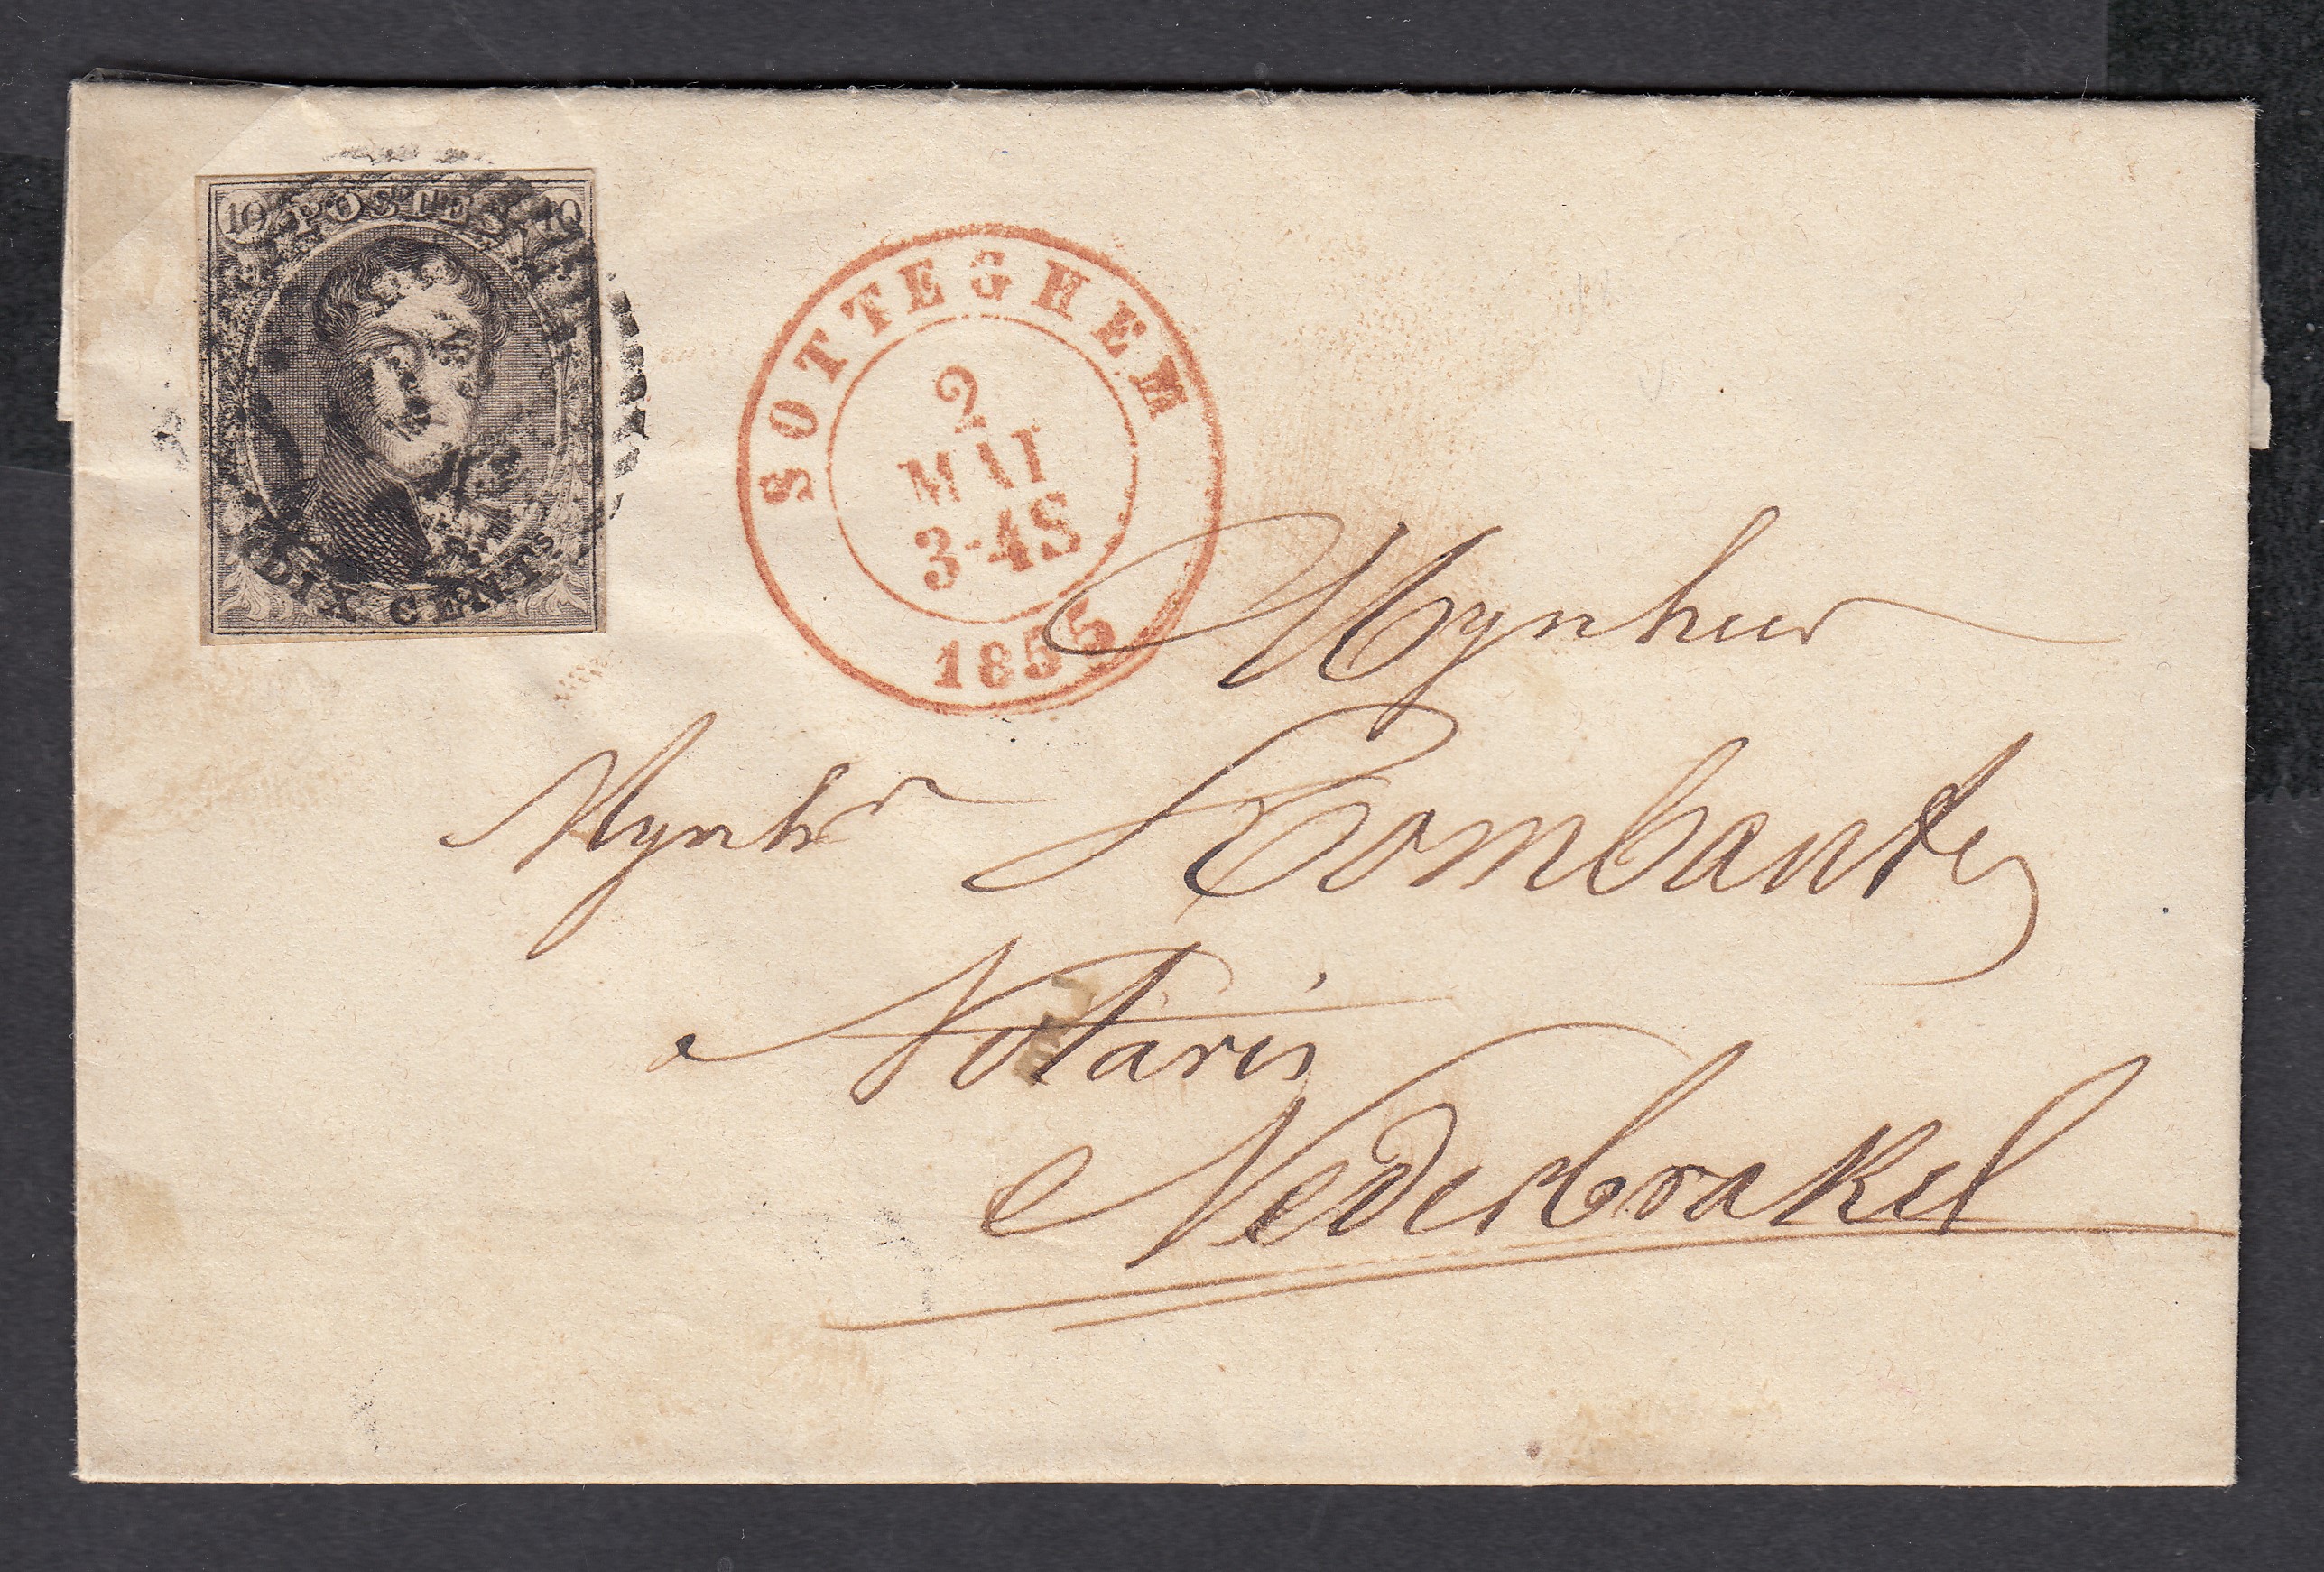 10 POSTES 10
DIX CENTS.
SOTTEGHEM
2
MAI
3-4S
1855
Mynheer
Mynhr Rombaut
Notaris
Nederbrakel